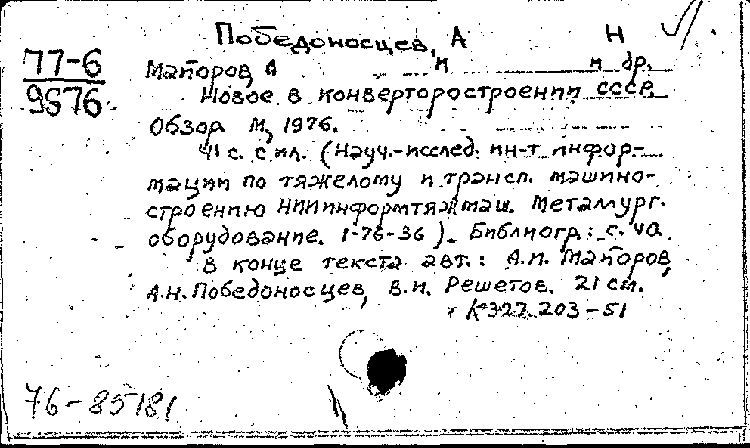 Победоносцев, А Н
77-6
9576
Майоров, А И и др.
Новое в конвертеростроении СССР.
Обзор М, 1976.
41 с. с ил. (Науч.-исслед. ин-т инфор-
мации по тяжелому и трансп. машино-
строению НИИинформтяжмаш. Металлург.
оборудование. 1-76-36). Библиогр.: с. 40.
В конце текста авт.: А.И. Майоров,
А.Н. Победоносцев, В.И. Решетов. 21 см.
К 322.203-51
76-85181